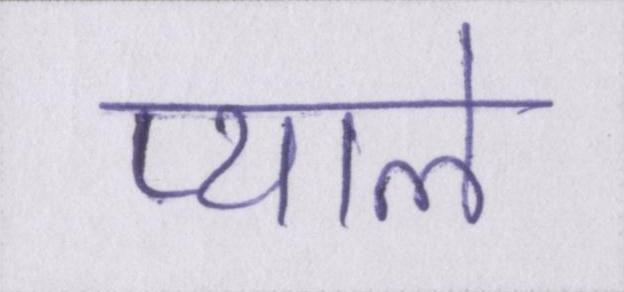 प्याले